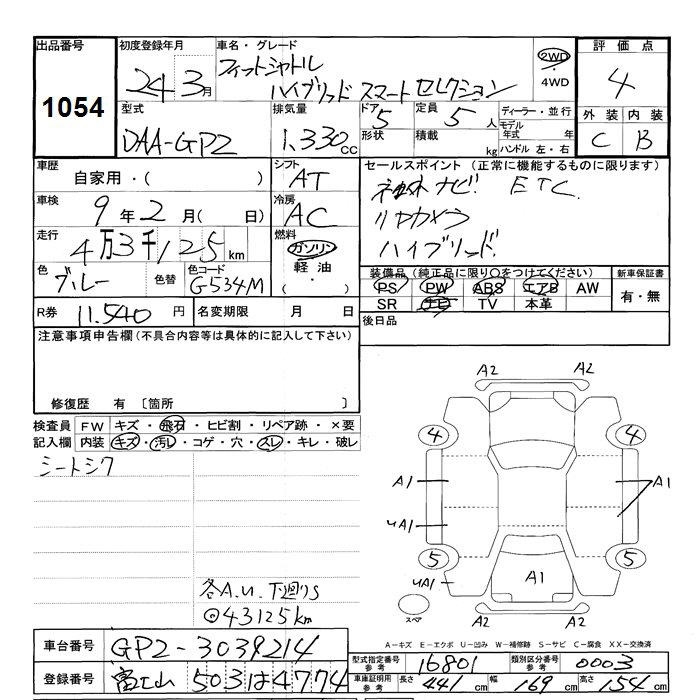 出品番号
1054
初度登録年月
24 3月
車名・グレード
フィットシャトル
ハイブリッド スマートセレクション
2WD
4WD
評価点
4
外装 内装
C B
型式
DAA-GP2
排気量
1,330cc
ドア 5
形状
定員 5人
積載 kg
ディーラー・並行
モデル年式 年
ハンドル 左・右
車歴
自家用・( )
シフト
AT
車検
9年2月( 日)
冷房
AC
走行
4万3千125km
燃料
ガソリン
軽油
( ・ )
色
ブルー
色替
色コード
G534M
R券 11,540円
名変期限 月 日
セールスポイント(正常に機能するものに限ります)
ナビ ETC
リヤカメラ
ハイブリッド
装備品(純正品に限り○をつけてください)
PS PW ABS エアB AW
SR TV 本革
新車保証書
有・無
後日品
注意事項申告欄(不具合内容等は具体的に記入して下さい)
修復歴 有 〔箇所 〕
検査員記入欄
FW キズ・飛石・ヒビ割・リペア跡・×要
内装 キズ・汚レ・コゲ・穴・スレ・キレ・破レ
シートシワ
各A.U.下廻りS
◎43125km
A2 A2
4 4
A1 A1
uA1
5 5
uA1
A1
スペア
A2 A2
A-キズ E-エクボ U-凹み W-補修跡 S-サビ C-腐食 XX-交換済
車台番号 GP2-3039214
登録番号 富士山 503 は 4774
型式指定番号 参考 16801
類別区分番号 参考 0003
車庫証明用 参考 長さ 441cm 幅 169cm 高さ 154cm